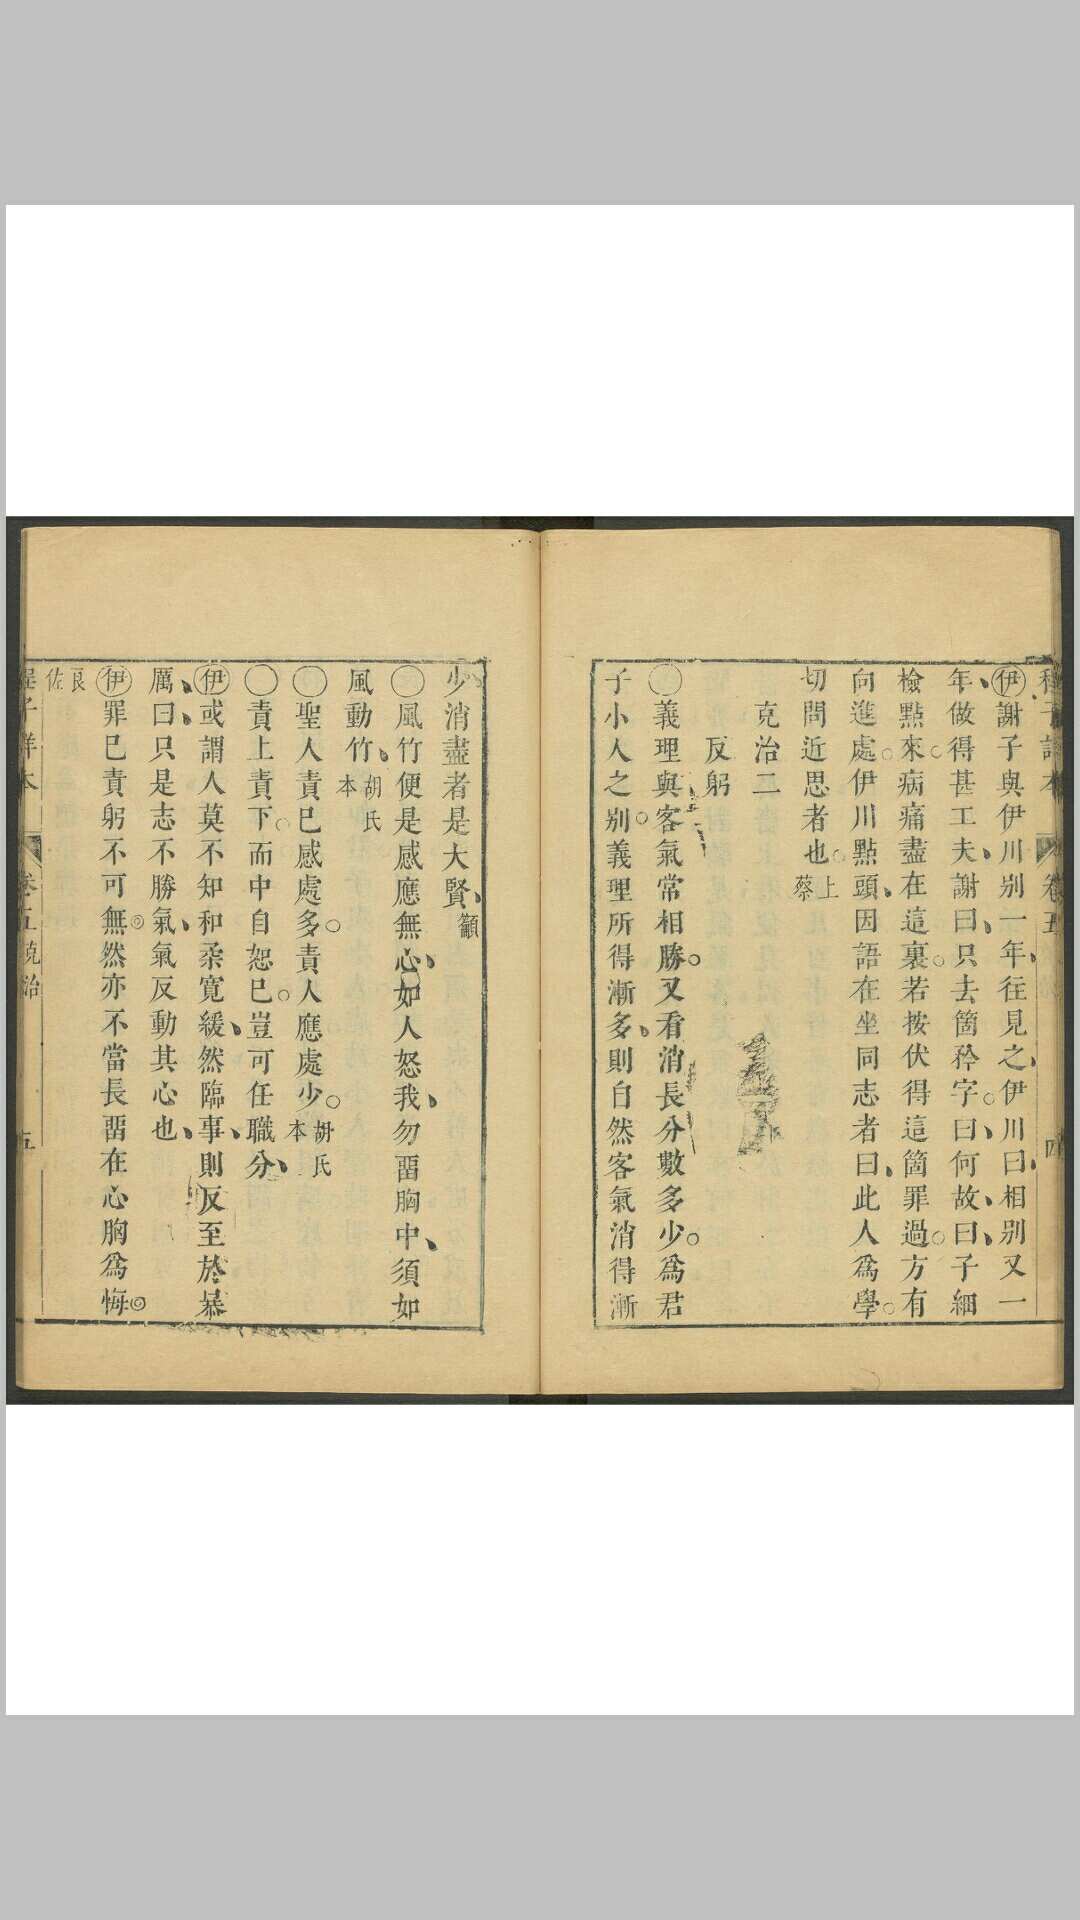 程子詳本 卷五 四
伊謝子與伊川別一年往見之伊川曰相別又一
年做得甚工夫謝曰只去箇矜字曰何故曰子細
檢點來病痛盡在這裏若按伏得這箇罪過方有
向進處伊川點頭因語在坐同志者曰此人爲學
切問近思者也上蔡
克治二
反躬
義理與客氣常相勝又看消長分數多少爲君
子小人之別義理所得漸多則自然客氣消得漸
少消盡者是大賢籲
風竹便是感應無心如人怒我勿畱胸中須如
風動竹胡氏本
聖人責已感處多責人應處少胡氏本
責上責下而中自恕已豈可任職分
伊或謂人莫不知和柔寬緩然臨事則反至於暴
厲曰只是志不勝氣氣反動其心也
伊罪已責躬不可無然亦不當長畱在心胸爲悔
良佐
程子詳本 卷五 克治 五